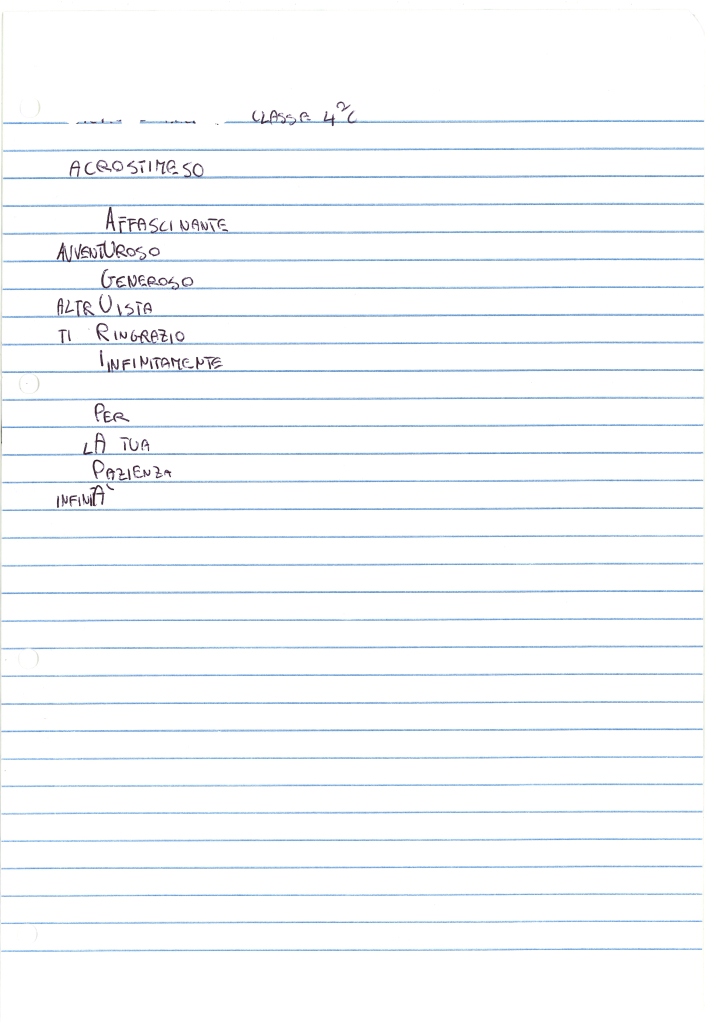 CLASSE 4ªC
ACROSTIMESO
AFFASCINANTE
AVVENTUROSO
GENEROSO
ALTRUISTA
TI RINGRAZIO
INFINITAMENTE
PER
LA TUA
PAZIENZA
INFINITÀ